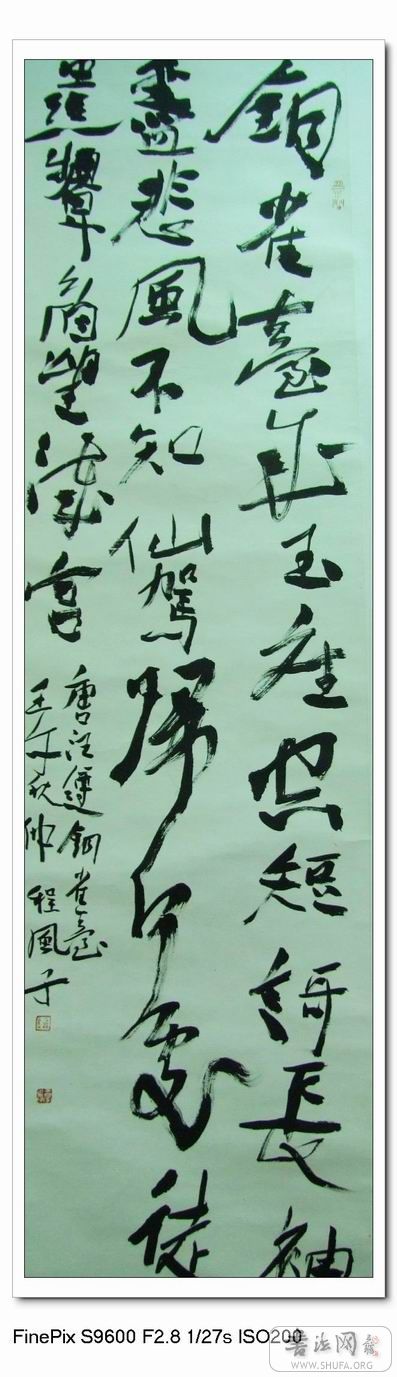 銅雀臺成玉座空短謌長袖
盡悲風不知仙駕歸何處徒
遣顰眉望漢宮
唐汪遵銅雀臺
壬午秋仲程風子
FinePix S9600 F2.8 1/27s ISO200
書法网
WWW.SHUFA.ORG